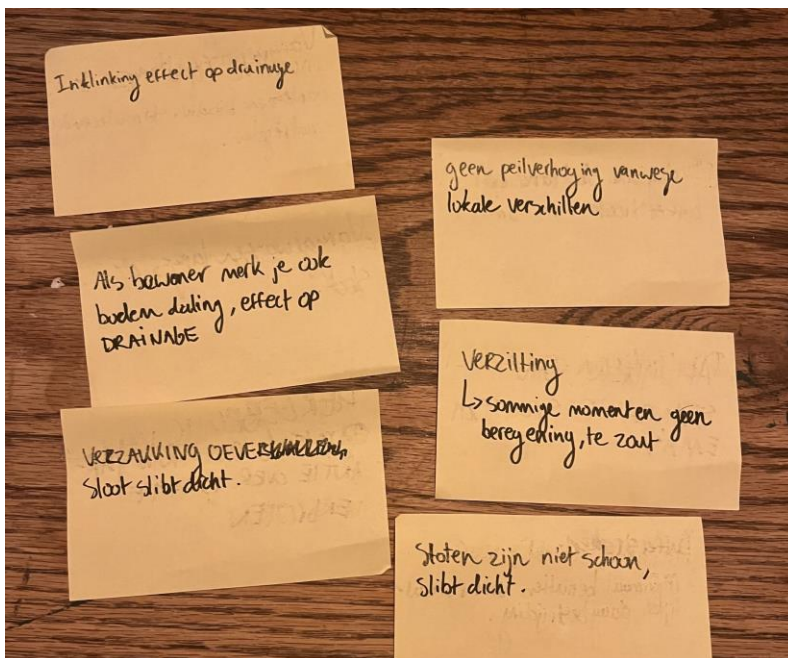 Inklinking effect op drainage
Als bewoner merk je ook
bodem daling, effect op
DRAINAGE
VERZAKKING OEVERS
Sloot slibt dicht.
geen peilverhoging vanwege
lokale verschillen
Verzilting
↳ sommige momenten geen
beregening, te zout
Sloten zijn niet schoon,
slibt dicht.